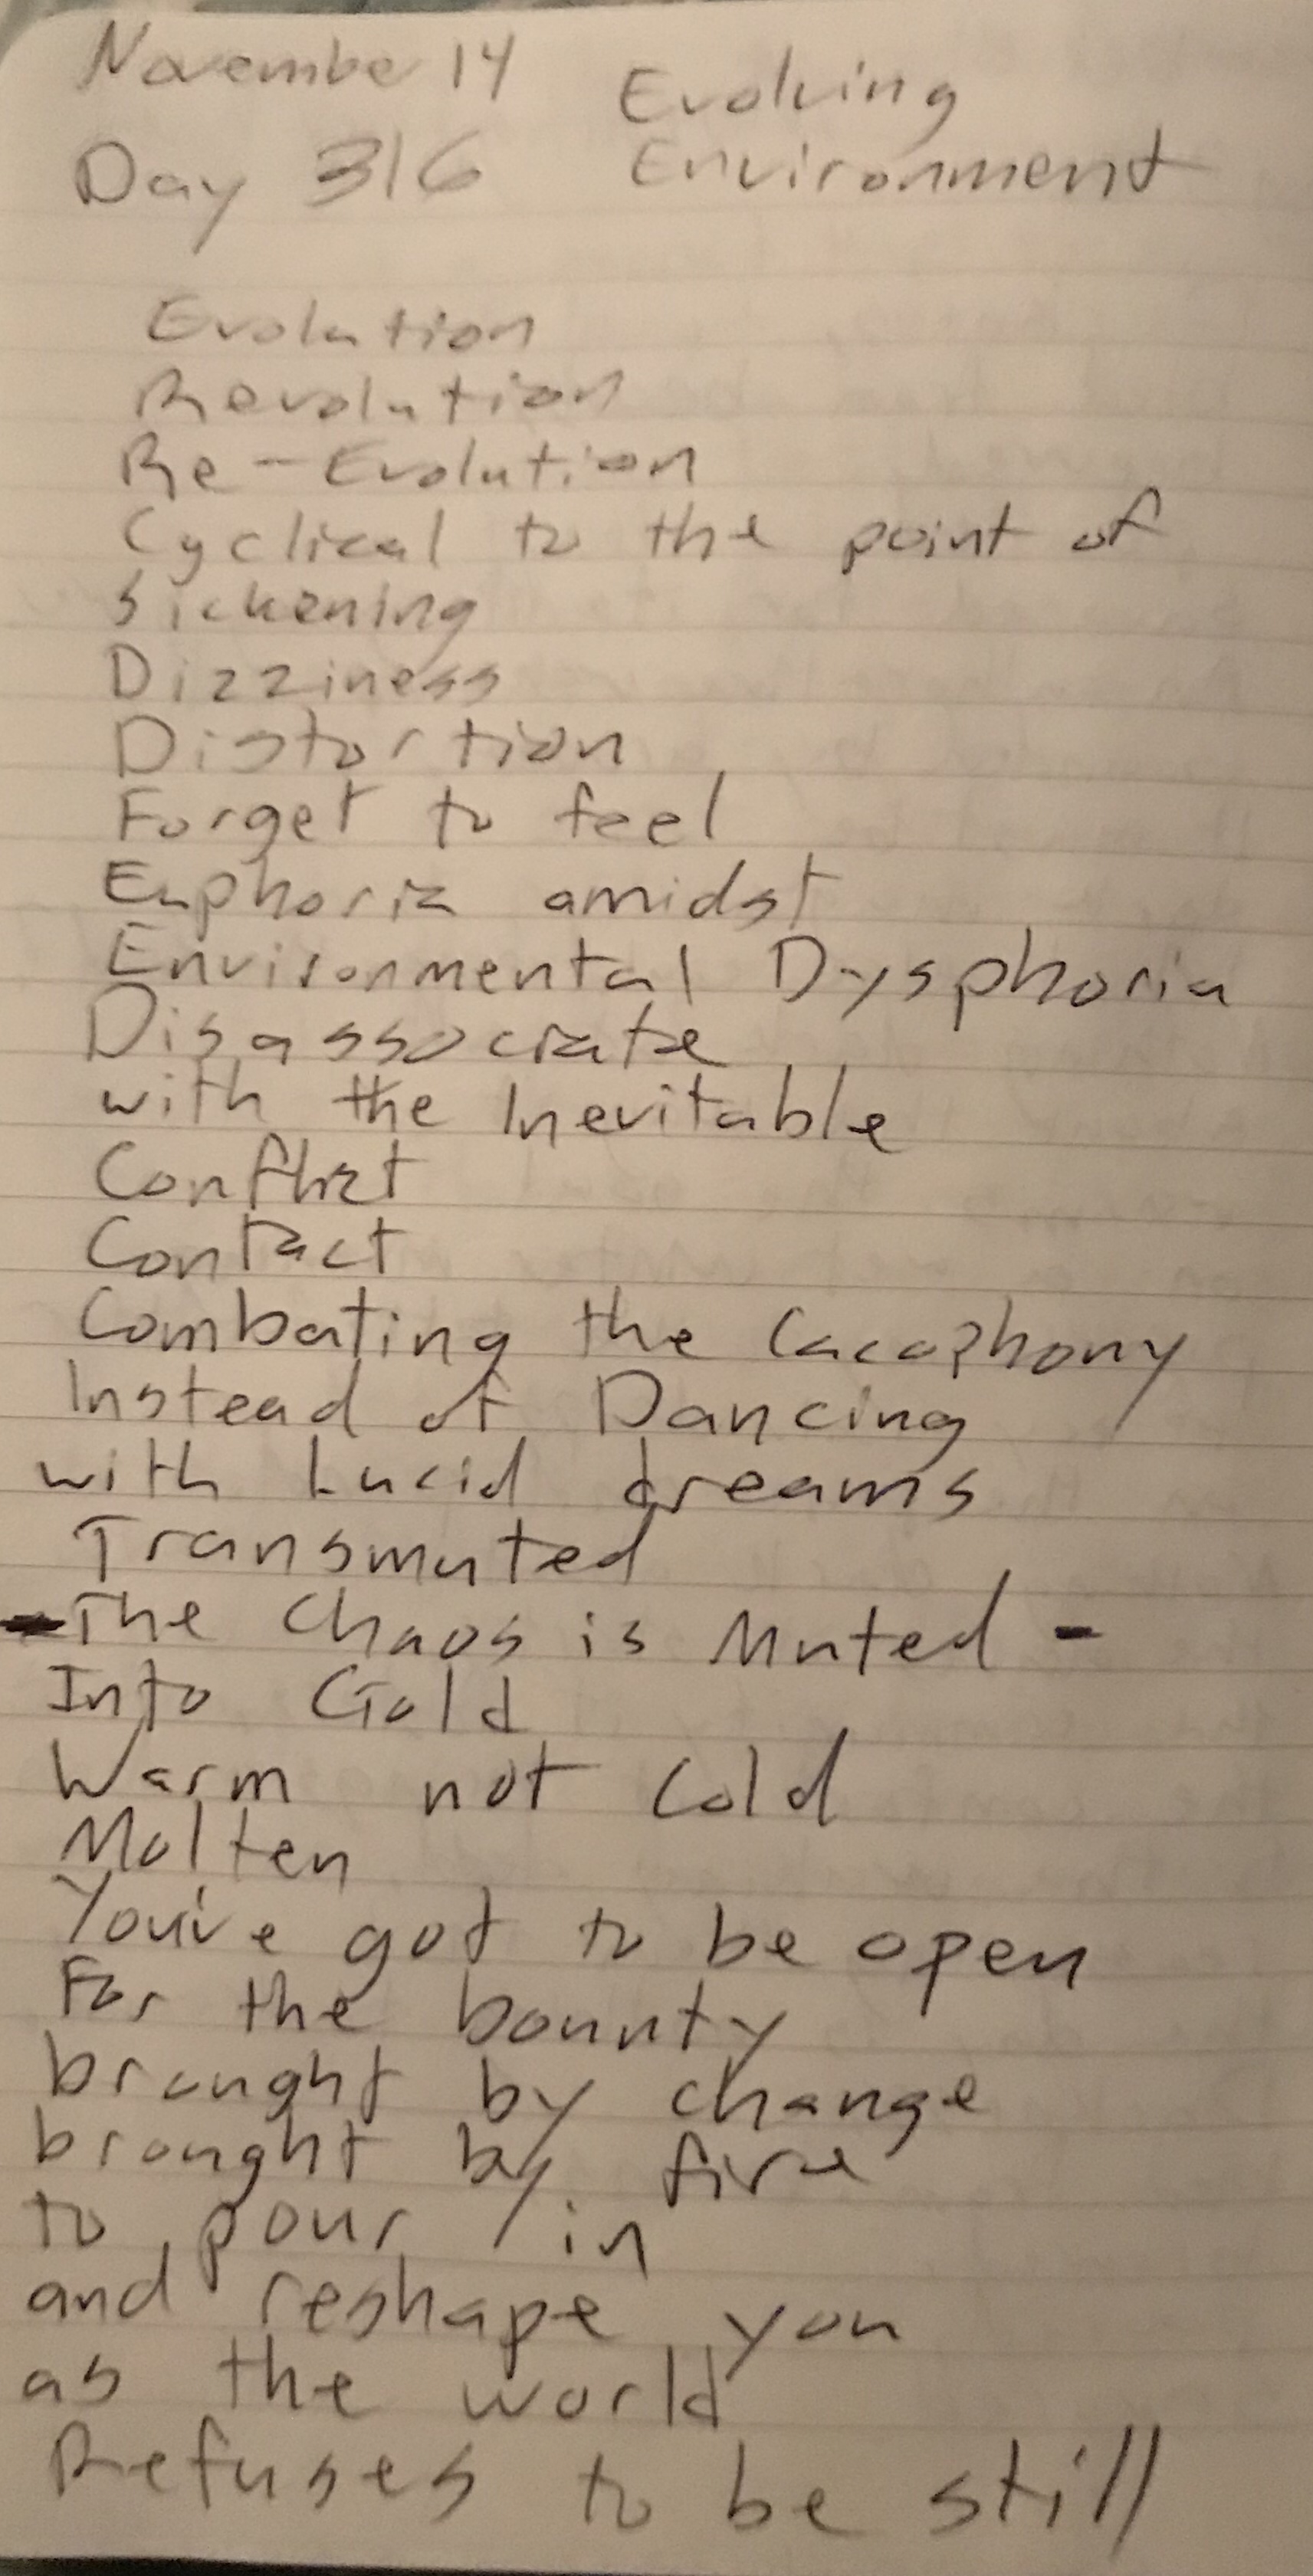 November 14
Evolving
Day 316
Environment
Evolution
Revolution
Re-Evolution
Cyclical to the point of
Sickening
Dizziness
Distortion
Forget to feel
Euphoria amidst
Environmental Dysphoria
Disassociate
with the Inevitable
Conflict
Contact
Combating the Cacophony
Instead of Dancing
with Lucid dreams
Transmuted
-The Chaos is Muted -
Into Gold
Warm not Cold
Molten
You've got to be open
For the bounty
brought by change
brought by fire
to pour in
and reshape you
as the world
Refuses to be still